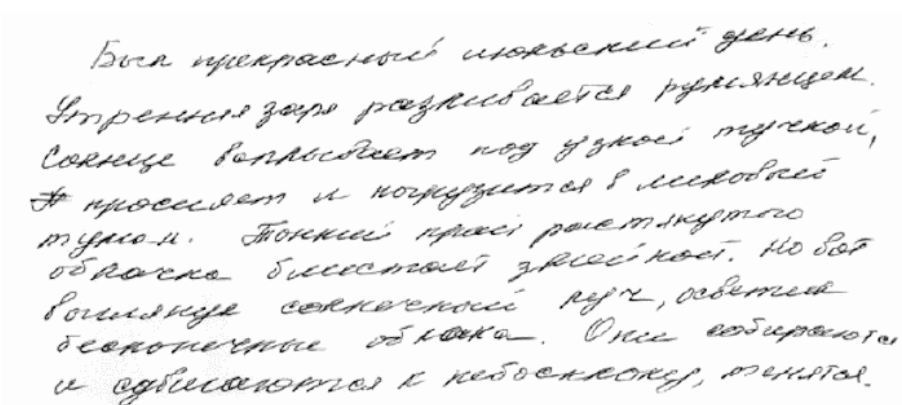 Был прекрасный июльский день.
Утренняя заря разливается румянцем.
Солнце всплывает под узкой тучкой,
просияет и погрузится в лиловый
туман. Тонкий край растянутого
облачка блистает змейкой. Но вот
выглянул солнечный луч, осветил
бесконечные облака. Они собираются
и сдвигаются к небосклону, темнятся.